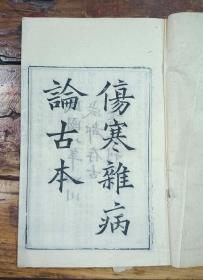 傷寒雜病
論古本